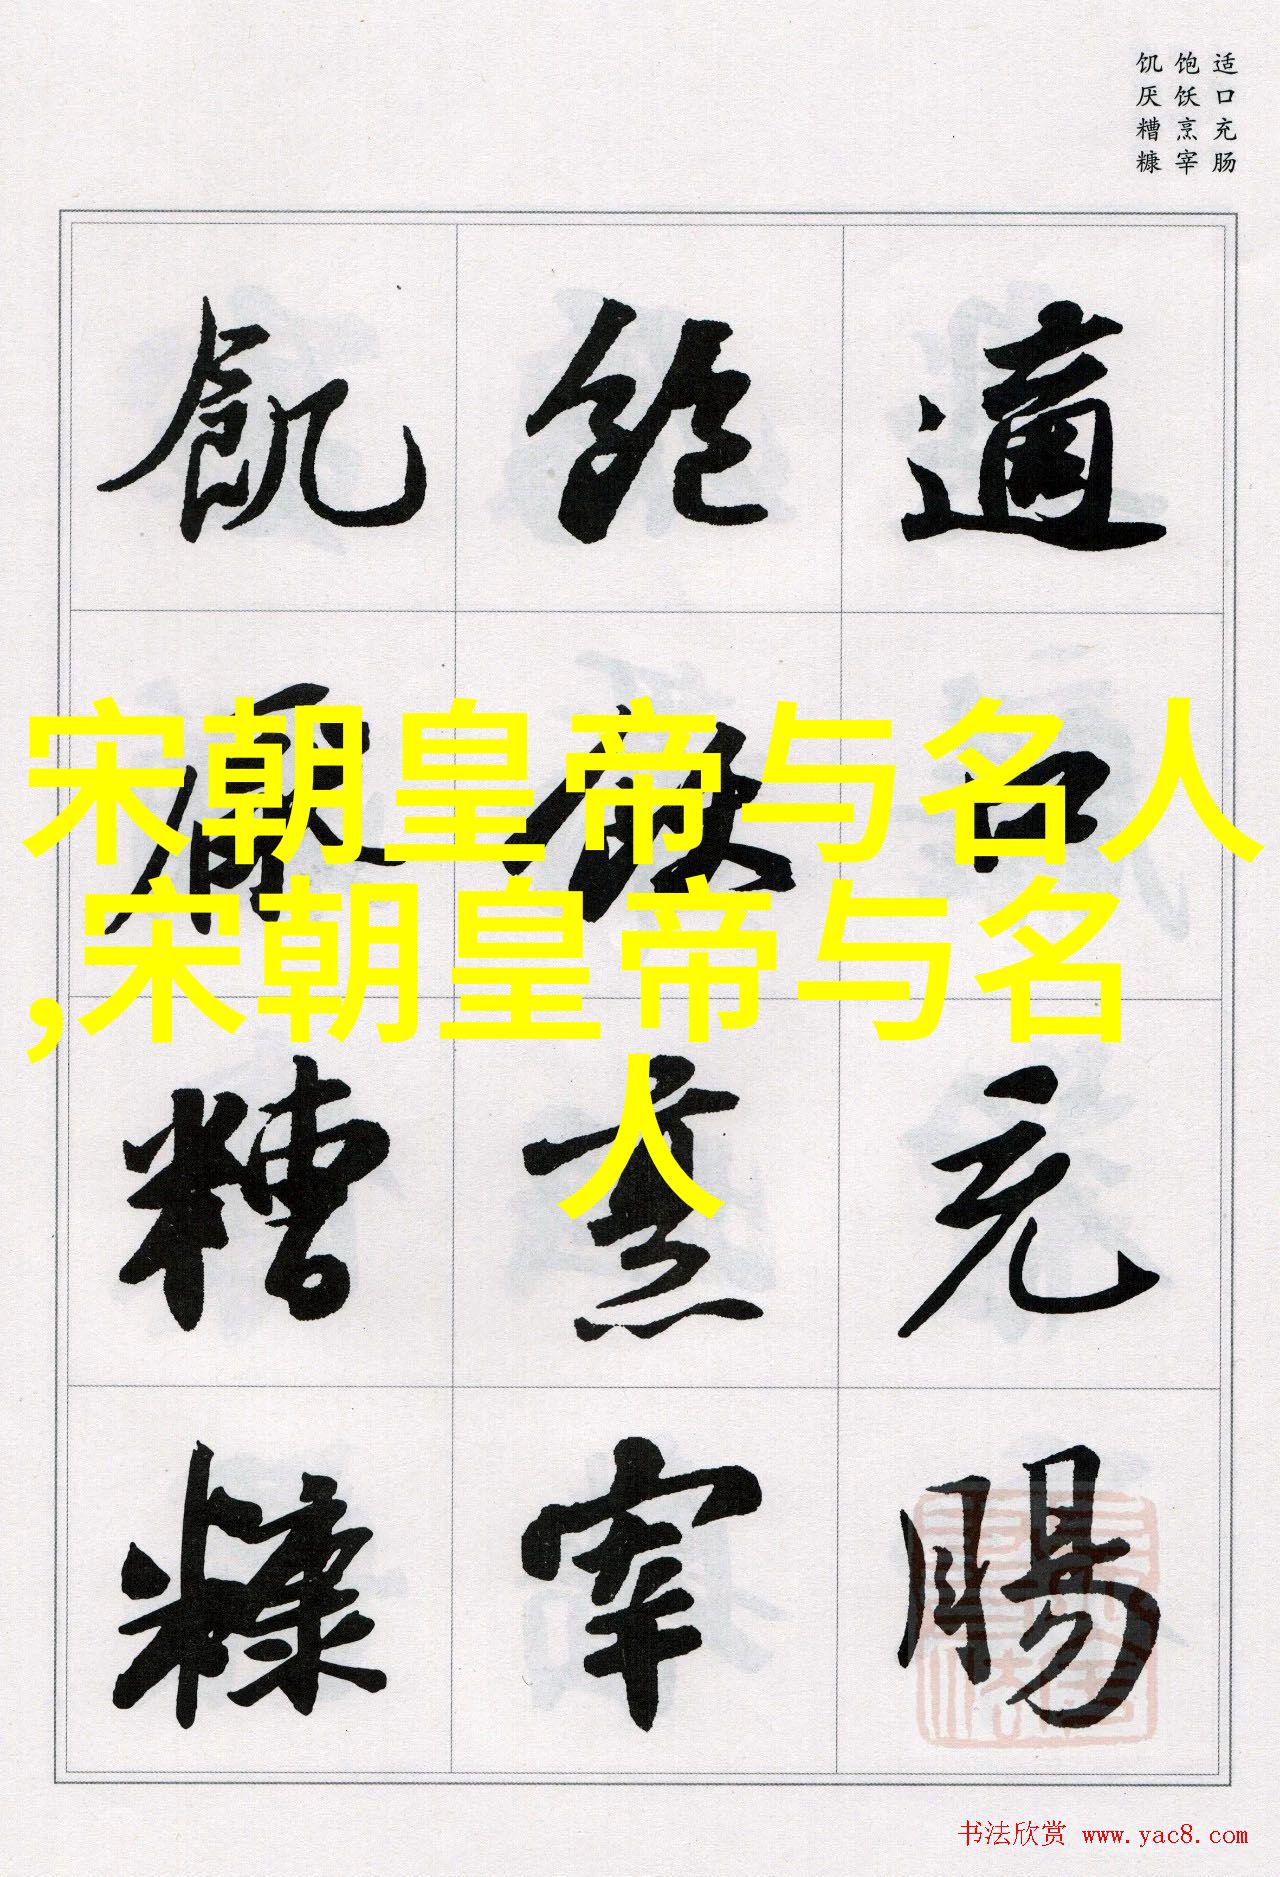 适口充肠
饱饫烹宰
饥厌糟糠
適口充腸
飽飫烹宰
飢厭糟糠
宋朝皇帝与名人
,宋朝皇帝与名
人
书法欣赏 www.yac8.com